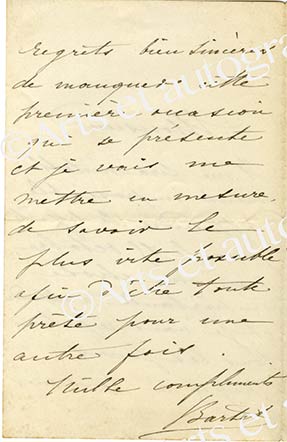 regrets bien sincères
de manquer cette
première occasion
qui se présente
et je vais me
mettre en mesure
de savoir le
plus vite possible
afin d'être toute
prête pour une
autre fois.
Mille compliments
Bartet
© Arts et autographes